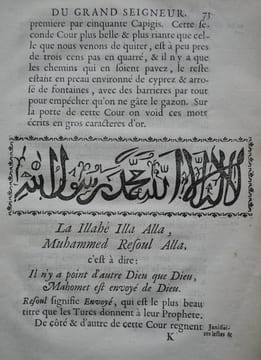 DU GRAND SEIGNEUR. 73
premiere par cinquante Capigis. Cette se-
conde Cour plus belle & plus riante que cel-
le que nous venons de quiter, est à peu près
de trois cens pas en quarré, & il n'y a que
les chemins qui en soient pavez, le reste
estant en preau environné de cyprez & arro-
sé de fontaines, avec des barrieres par tout
pour empêcher qu'on ne gâte le gazon. Sur
la porte de cette Cour on void ces mots
écrits en gros caracteres d'or.
لا اله الا الله محمد رسول الله
La Illahè Illa Alla,
Muhammed Resoul Alla.
c'est à dire:
Il n'y a point d'autre Dieu que Dieu,
Mahomet est envoyé de Dieu.
Resoul signifie Envoyé, qui est le plus beau
titre que les Turcs donnent à leur Prophete.
De côté & d'autre de cette Cour regnent
K